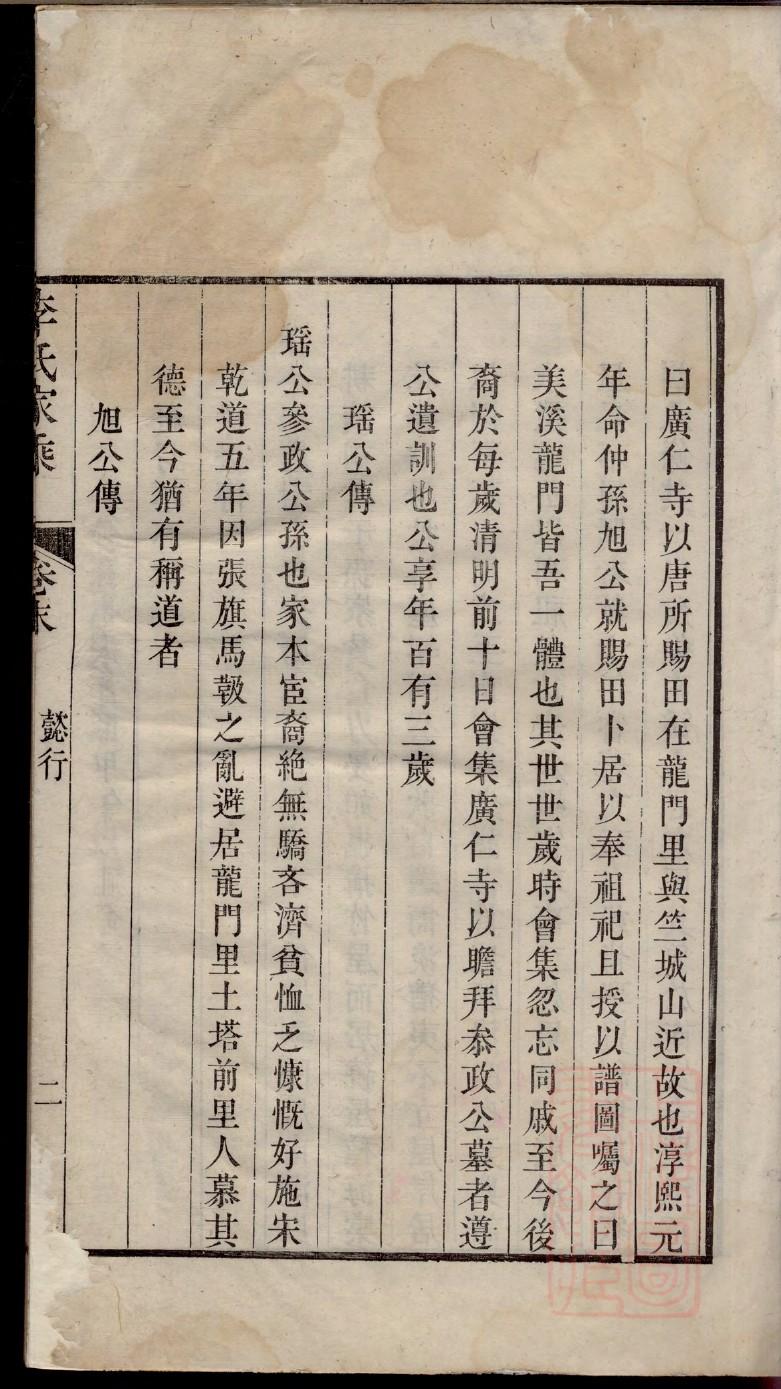 曰廣仁寺以唐所賜田在龍門里與竺城山近故也淳熙元
年命仲孫旭公就賜田卜居以奉祖祀且授以譜圖囑之曰
美溪龍門皆吾一體也其世世歲時會集忽忘同戚至今後
裔於每歲清明前十日會集廣仁寺以瞻拜叅政公墓者遵
公遺訓也公享年百有三歲
瑶公傳
瑶公參政公孫也家本宦裔絶無驕吝濟貧恤乏慷慨好施宋
乾道五年因張旗馬報之亂避居龍門里土塔前里人慕其
德至今猶有稱道者
旭公傳
李氏家乘 卷末 懿行 二